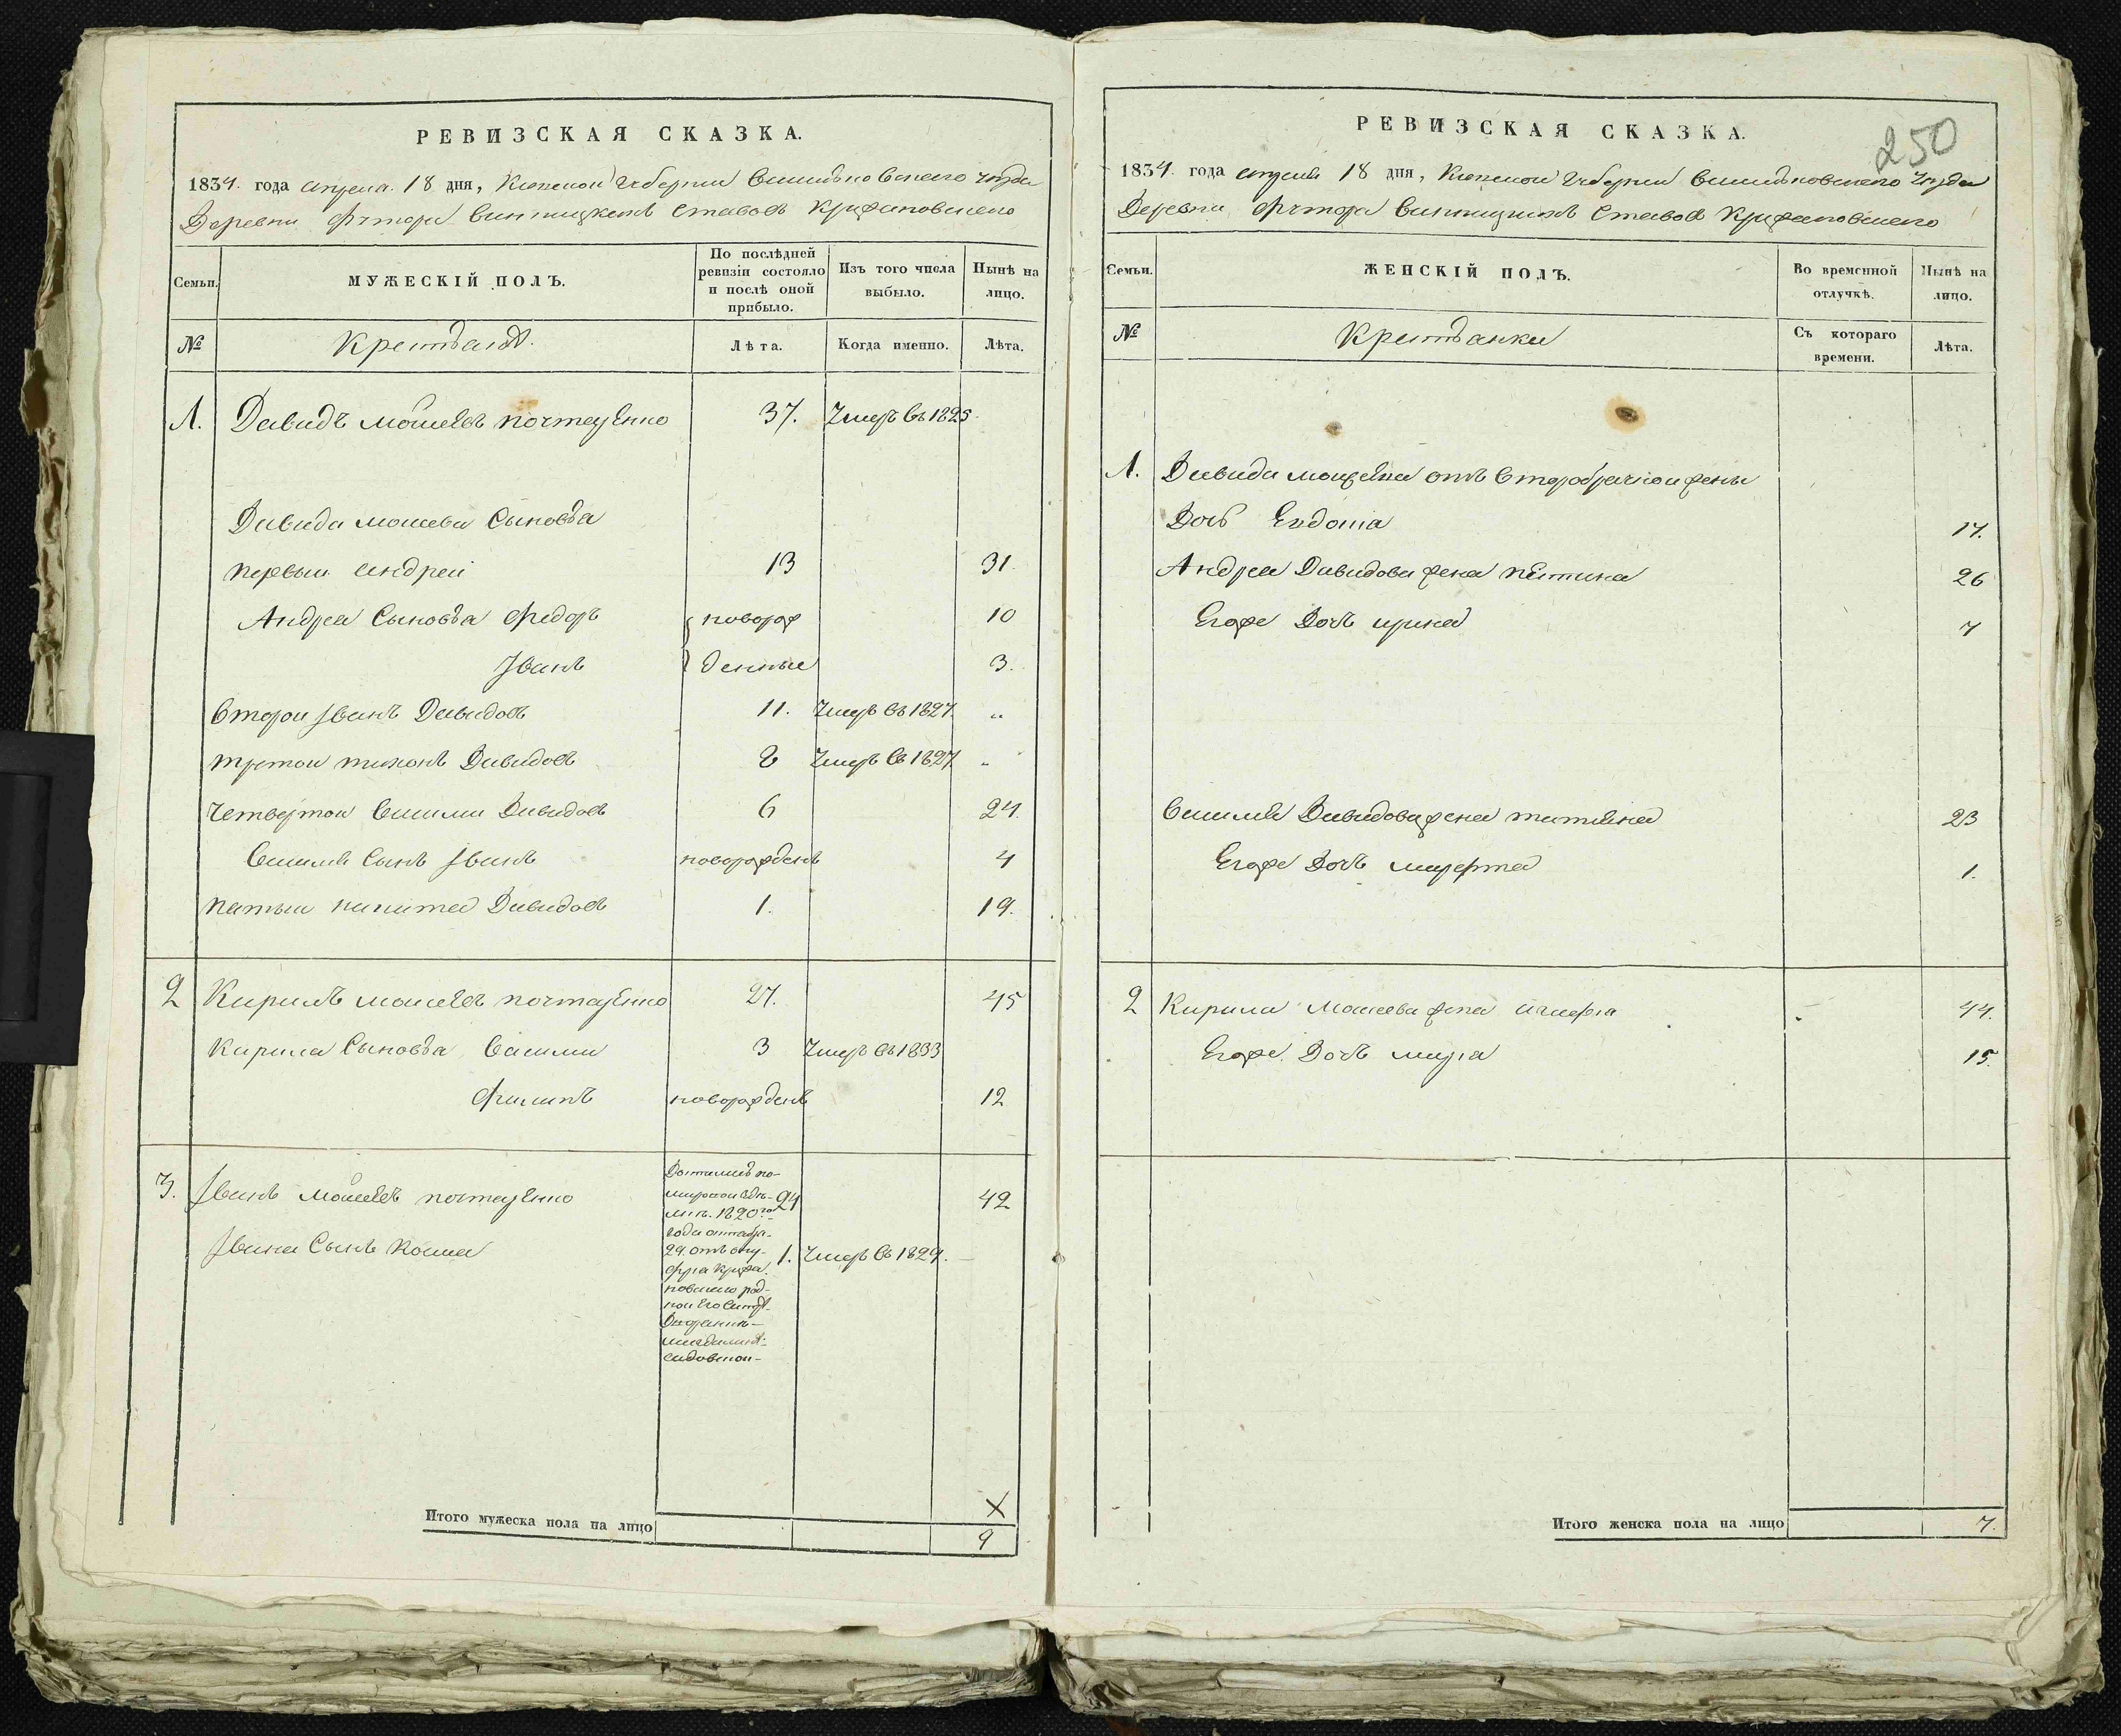 РЕВИЗСКАЯ СКАЗКА.
1834. года апреля. 18 дня, Киевской Губернии Васильковского уезда
Деревни футора Винницких Ставов Крижановского
Семьи.
МУЖЕСКІЙ ПОЛЪ.
По послѣдней ревизіи состояло и послѣ оной прибыло.
Изъ того числа выбыло.
Нынѣ на лицо.
№
Крестьянѣ.
Лѣта.
Когда именно.
Лѣта.
1. Давидъ Мосиевъ 37. Умеръ въ 1825.
Давида Мосиева Сыновья
первый андрей 13 31.
Андрея Сыновья Федоръ новорож 10
Иванъ денные 3.
Второй Иванъ Давидовъ 11. Умеръ въ 1827. "
третой тихонъ Давидовъ 8 Умеръ въ 1827. "
Четвертой Василий Давидовъ 6 24.
Василия Сынъ Иванъ новорожденъ 4
пятый никита Давидовъ 1. 19.
2 Кирилъ Мосиевъ 27. 45
Кирила Сыновья Василий 3 Умеръ въ 1833
Филипъ новорожденъ 12
3. Иванъ Мосиевъ 24 42
Достались по
1820го
года октября
29. отъ
новского род-
ной его сестрѣ
Ивана Сынъ Косма 1. Умеръ въ 1829. —
Итого мужеска пола на лицо
9
РЕВИЗСКАЯ СКАЗКА.
250
1834. года апреля 18 дня, Киевской Губернии Васильковского уезда
Деревни футора Винницких Ставов Крижановского
Семьи.
ЖЕНСКІЙ ПОЛЪ.
Во временной отлучкѣ.
Нынѣ на лицо.
№
Крестьянки
Съ котораго времени.
Лѣта.
1. Давида Мосиева отъ второбрачной жены
Дочь Евдокия 17.
Андрея Давидова жена 26
Егоже Дочь ирина 7
Василия Давидова жена татияна 23
Егоже Дочь марфта 1.
2 Кирила Мосиева жена 44.
Егоже Дочь мария 15.
Итого женска пола на лицо
7.